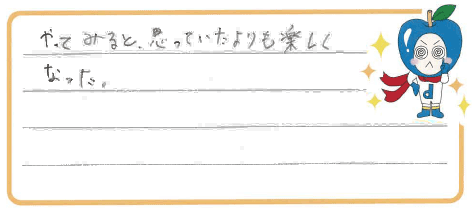 やってみると、思っていたよりも楽しく
なった。